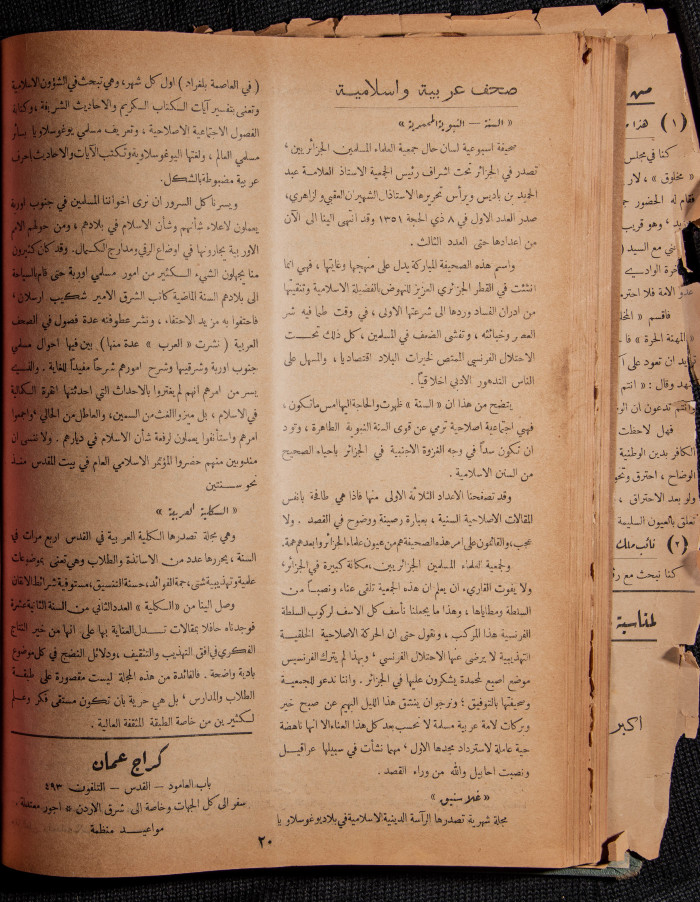 صحف عربية واسلامية
« السنة – النبوية المحمدية »
صحيفة اسبوعية لسان حال جمعية العلماء المسلمين الجزائريين ،
تصدر في الجزائر تحت اشراف رئيس الجمعية الاستاذ العلامة عبد
الحميد بن باديس ويرأس تحريرها الاستاذان الشهيران العقبي والزاهري،
صدر العدد الاول في ٨ ذي الحجة ١٣٥١ وقد انتهى الينا الى الآن
من اعدادها حتى العدد الثالث .
واسم هذه الصحيفة المباركة يدل على منهجها وغايتها ، فهي انما
انشئت في القطر الجزائري العزيز للنهوض بالفضيلة الاسلامية وتنقيتها
من ادران الفساد وردها الى شرعتها الاولى ، في وقت طما فيه شر
العصر وخبائثه ، وتفشى الضعف في المسلمين ، كل ذلك تحت
الاحتلال الفرنسي الممتص لخيرات البلاد اقتصاديا ، والمسهل على
الناس التدهور الادبي اخلاقياً .
يتضح من هذا ان « السنة » ظهرت والحاجة اليها امس ما تكون ،
فهي اجتماعية اصلاحية ترمي عن قوى السنة النبوية الطاهرة ، وتود
ان تكون سداً في وجه الغزوة الاجنبية في الجزائر باحياء الصحيح
من السنن الاسلامية .
وقد تصفحنا الاعداد الثلاثة الاولى منها فاذا هي طافحة بانفس
المقالات الاصلاحية السنية ، بعبارة رصينة ووضوح في القصد . ولا
عجب، والقائمون على امر هذه الصحيفة هم من عيون علماء الجزائر وابعدهم همة.
ولجمعية العلماء المسلمين الجزائريين ، مكانة كبيرة في الجزائر،
ولا يفوت القاريء ان يعلم ان هذه الجمعية تلقى عناء ونصباً من
السلطة ومطاياها ، وهذا ما يجعلنا نأسف كل الاسف لركوب السلطة
الفرنسية هذا المركب ، ونقول حتى ان الحركة الاصلاحية الخلقية
التهذيبية لا يرضى عنها الاحتلال الفرنسي ، وبهذا لم يترك الفرنسيس
موضع اصبع لمحمدة يشكرون عليها في الجزائر . واننا ندعو للجمعية
وصحيفتها بالتوفيق ؛ ونرجو ان ينشق هذا الليل البهيم عن صبح خير
وبركات لامة عربية مسلمة لا نحسب بعد كل هذا العناء الا انها ناهضة
حية عاملة لاسترداد مجدها الاول ، مهما نشأت في سبيلها عراقيل
ونصبت احابيل والله من وراء القصد .
« غلاسنيق »
مجلة شهرية تصدرها الرآسة الدينية الاسلامية في بلاد يوغوسلاويا
( في العاصمة بلغراد ) اول كل شهر ، وهي تبحث في الشؤون الاسلامية
وتعنى بتفسير آيات الكتاب الكريم والاحاديث الشريفة ، وكتابة
الفصول الاجتماعية الاصلاحية ، وتعريف مسلمي يوغوسلاويا بسائر
مسلمي العالم ، ولغتها اليوغوسلاوية وتكتب الآيات والاحاديث احرف
عربية مضبوطة بالشكل .
ويسرنا كل السرور ان نرى اخواننا المسلمين في جنوب اوربة
يعملون لاعلاء شأنهم وشأن الاسلام في بلادهم ، ومن حولهم الامم
الاوربية يجارونها في اوضاع الرقي ومدارج الكمال . وقد كان كثيرون
منا يجهلون الشيء الكثير من امور مسلمي اوربة حتى قام بالسياحة
الى بلادهم السنة الماضية كاتب الشرق الامير شكيب ارسلان ،
فاحتفوا به مزيد الاحتفاء ، ونشر عطوفته عدة فصول في الصحف
العربية ( نشرت « العرب » عدة منها ) بين فيها احوال مسلمي
جنوب اوربة وشرقيها وشرح امورهم شرحاً مفيداً للغاية . والذي
يسر من امرهم انهم لم يغتروا بالاحداث التي احدثتها انقرة الكمالية
في الاسلام ، بل ميزوا الغث من السمين، والعاطل من الحالي ، واجمعوا
امرهم واستأنفوا يعملون لرفعة شأن الاسلام في ديارهم . ولا ننسى ان
مندوبين منهم حضروا المؤتمر الاسلامي العام في بيت المقدس منذ
نحو سنتين
« الكلية العربية »
وهي مجلة تصدرها الكلية العربية في القدس اربع مرات في
السنة ، يحررها عدد من الاساتذة والطلاب وهي تعنى بموضوعات
علمية وتهذيبية شتى ، جمة الفوائد ، حسنة التنسيق ، مستوفية شرائط الاتقان
وصل الينا من « الكلية » العدد الثاني من السنة الثانية عشرة
فوجدناه حافلا بمقالات تدل العناية بها على انها من خير النتاج
الفكري في افق التهذيب والتثقيف ، ودلائل النضج في كل موضوع
بادية واضحة . فالفائدة من هذه المجلة ليست مقصورة على طبقة
الطلاب والمدارس ، بل هي حرية بان تكون مستقى فكر وعلم
لكثيرين من خاصة الطبقة المثقفة العالية .
كراج عمان
باب العامود – القدس – التلفون ٤٩٣
سفر الى كل الجهات وخاصة الى شرق الاردن * اجور معتدلة .
مواعيد منظمة
٢٠
( ١ ) هذا
كنا في مجلس
« مخلوق » ، لار
فقام له الحضور
وهو قريب
مع السيد (
عدو الامة فلا احترم
فاقسم « المخل
« المهنة الحرة » فا
ان تعود على ا
وقال : « انتم
تدعون ان اثر
فهل لاحظت
الكافر بدين الوطنية
الوضاح ، احترق وتح
ولو بعد الاحتراق ،
تعلق بالعيون السليمة
( ٢ ) نائب ملك
كنا نبحث مع رف
لمناسبة
اكبر